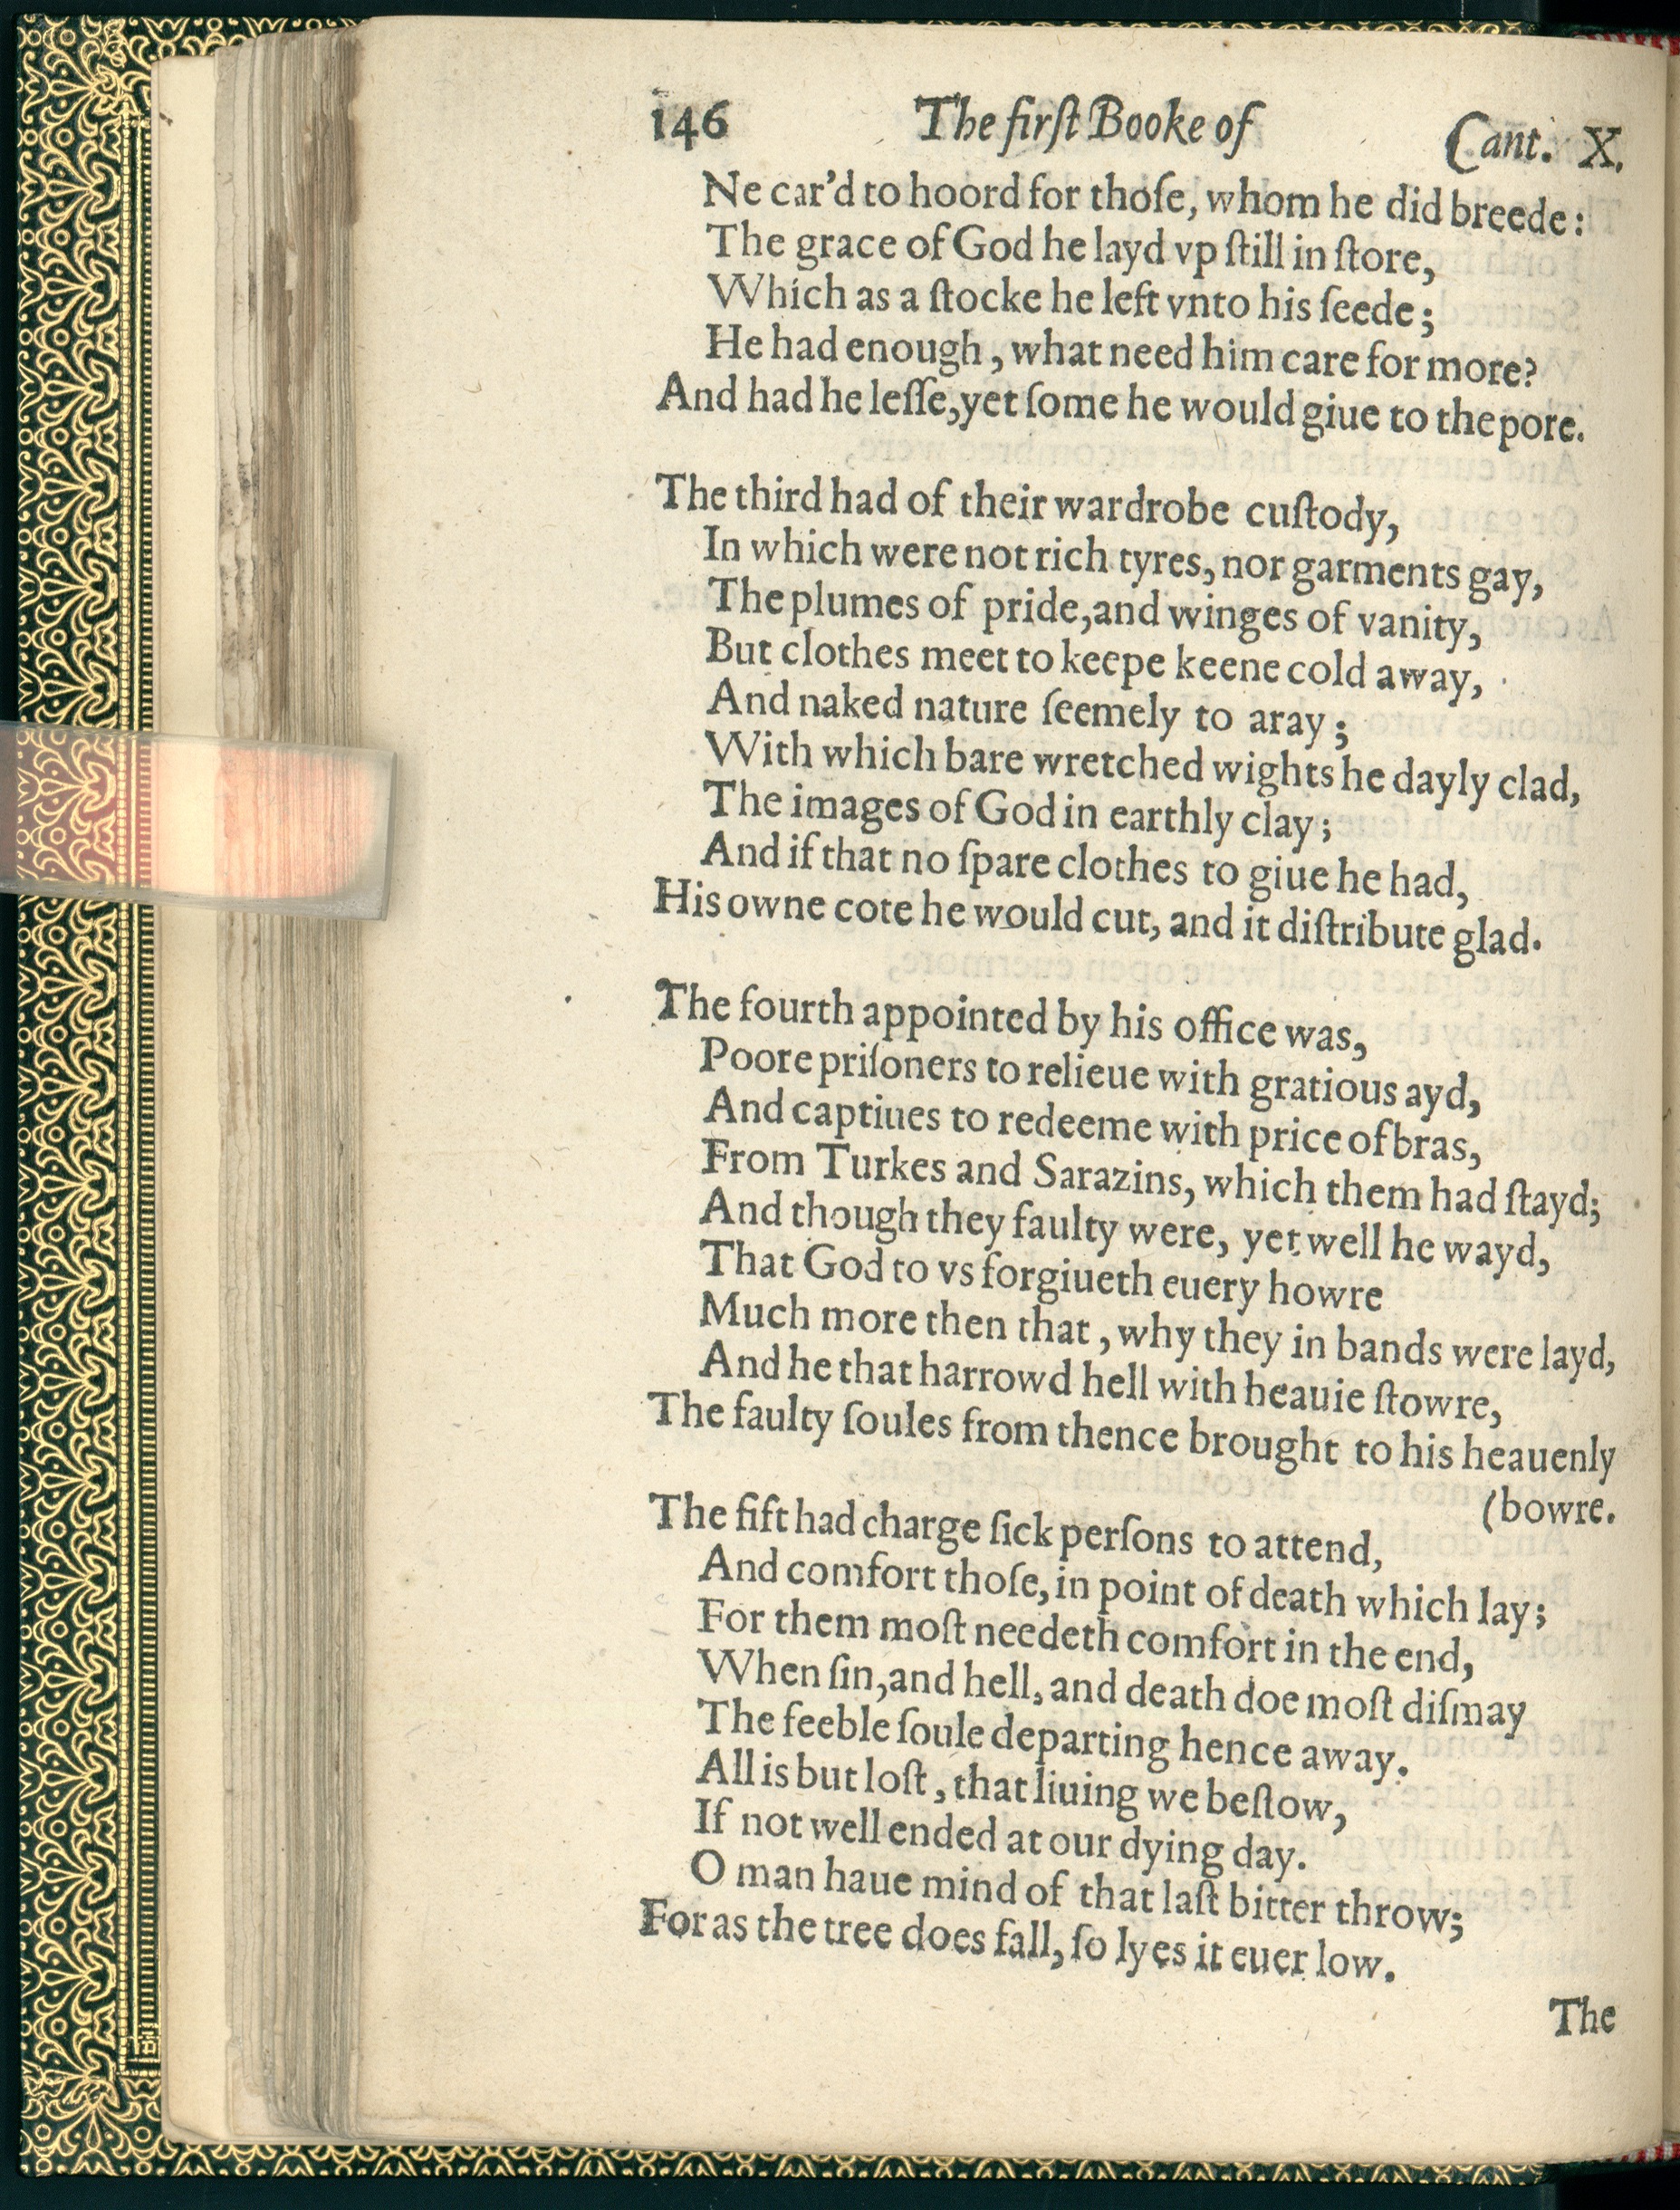 146 The firſt Booke of Cant. X.
Ne car'd to hoord for thoſe, whom he did breede:
The grace of God he layd vp ſtill in ſtore,
Which as a ſtocke he left vnto his ſeede;
He had enough, what need him care for more?
And had he leſſe, yet ſome he would giue to the pore.
The third had of their wardrobe cuſtody,
In which were not rich tyres, nor garments gay,
The plumes of pride, and winges of vanity,
But clothes meet to keepe keene cold away,
And naked nature ſeemely to aray;
With which bare wretched wights he dayly clad,
The images of God in earthly clay;
And if that no ſpare clothes to giue he had,
His owne cote he would cut, and it diſtribute glad.
The fourth appointed by his office was,
Poore priſoners to relieue with gratious ayd,
And captiues to redeeme with price of bras,
From Turkes and Sarazins, which them had ſtayd;
And though they faulty were, yet well he wayd,
That God to vs forgiueth euery howre
Much more then that, why they in bands were layd,
And he that harrowd hell with heauie ſtowre,
The faulty ſoules from thence brought to his heauenly
(bowre.
The fift had charge ſick perſons to attend,
And comfort thoſe, in point of death which lay;
For them moſt needeth comfort in the end,
When ſin, and hell, and death doe moſt diſmay
The feeble ſoule departing hence away.
All is but loſt, that liuing we beſtow,
If not well ended at our dying day.
O man haue mind of that laſt bitter throw;
For as the tree does fall, ſo lyes it euer low.
The